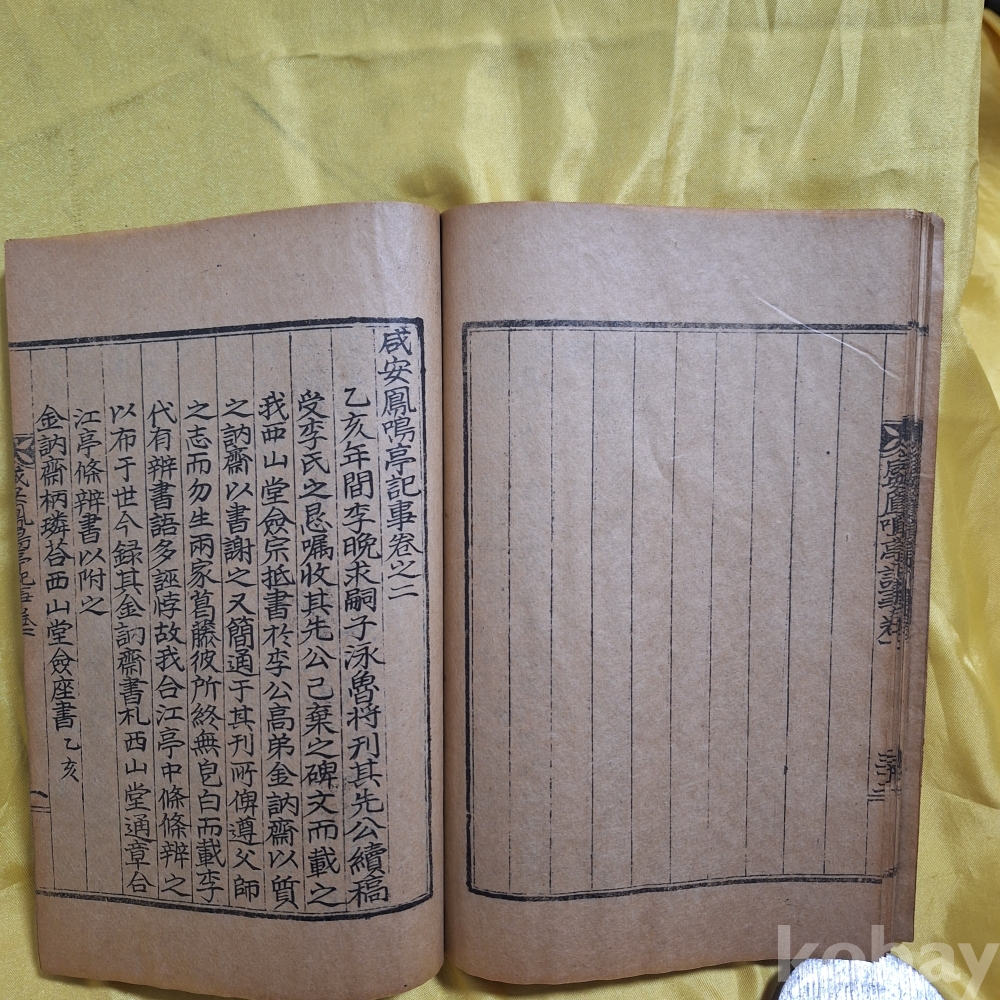 咸安鳳鳴亭記事卷之二
乙亥年間李晚求嗣子泳魯將刊其先公續稿
受李氏之恳囑收其先公己棄之碑文而載之
我西山堂僉宗抵書於李公高弟金訥齋以質
之訥齋以書謝之又簡通于其刊所俾遵父師
之志而勿生兩家葛藤彼所終無皀白而載李
代有辨書語多誣悖故我台江亭中條條辨之
以布于世今録其金訥齋書札西山堂通章台
江亭條辨書以附之
金訥齋柄璘荅西山堂僉座書乙亥
咸安鳳鳴亭記事 卷二
一
kobay